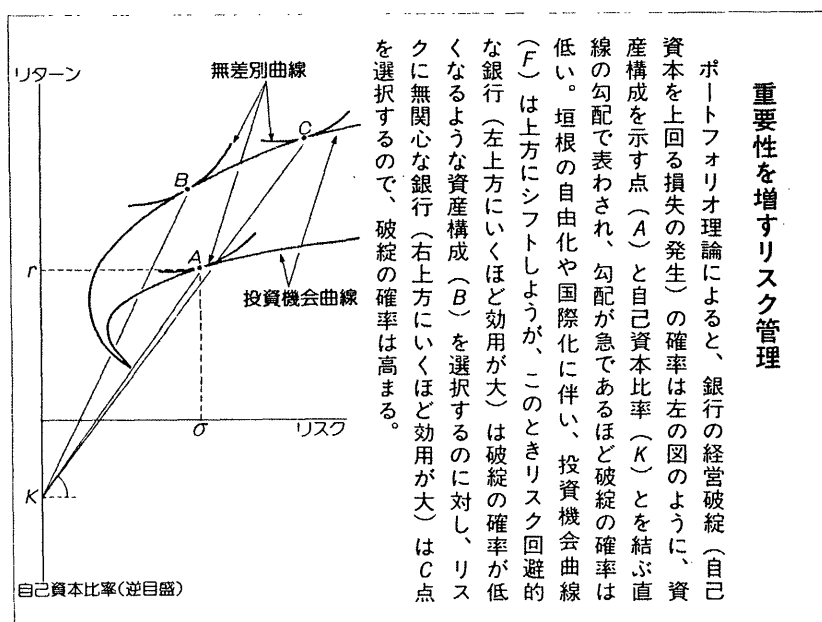 重要性を増すリスク管理
ポートフォリオ理論によると、銀行の経営破綻（自己
資本を上回る損失の発生）の確率は左の図のように、資
産構成を示す点（A）と自己資本比率（K）とを結ぶ直
線の勾配で表わされ、勾配が急であるほど破綻の確率は
低い。垣根の自由化や国際化に伴い、投資機会曲線
（F）は上方にシフトしようが、このときリスク回避的
な銀行（左上方にいくほど効用が大）は破綻の確率が低
くなるような資産構成（B）を選択するのに対し、リス
クに無関心な銀行（右上方にいくほど効用が大）はC点
を選択するので、破綻の確率は高まる。
リターン
無差別曲線
C
B
A
r
投資機会曲線
σ
リスク
K
自己資本比率(逆目盛)